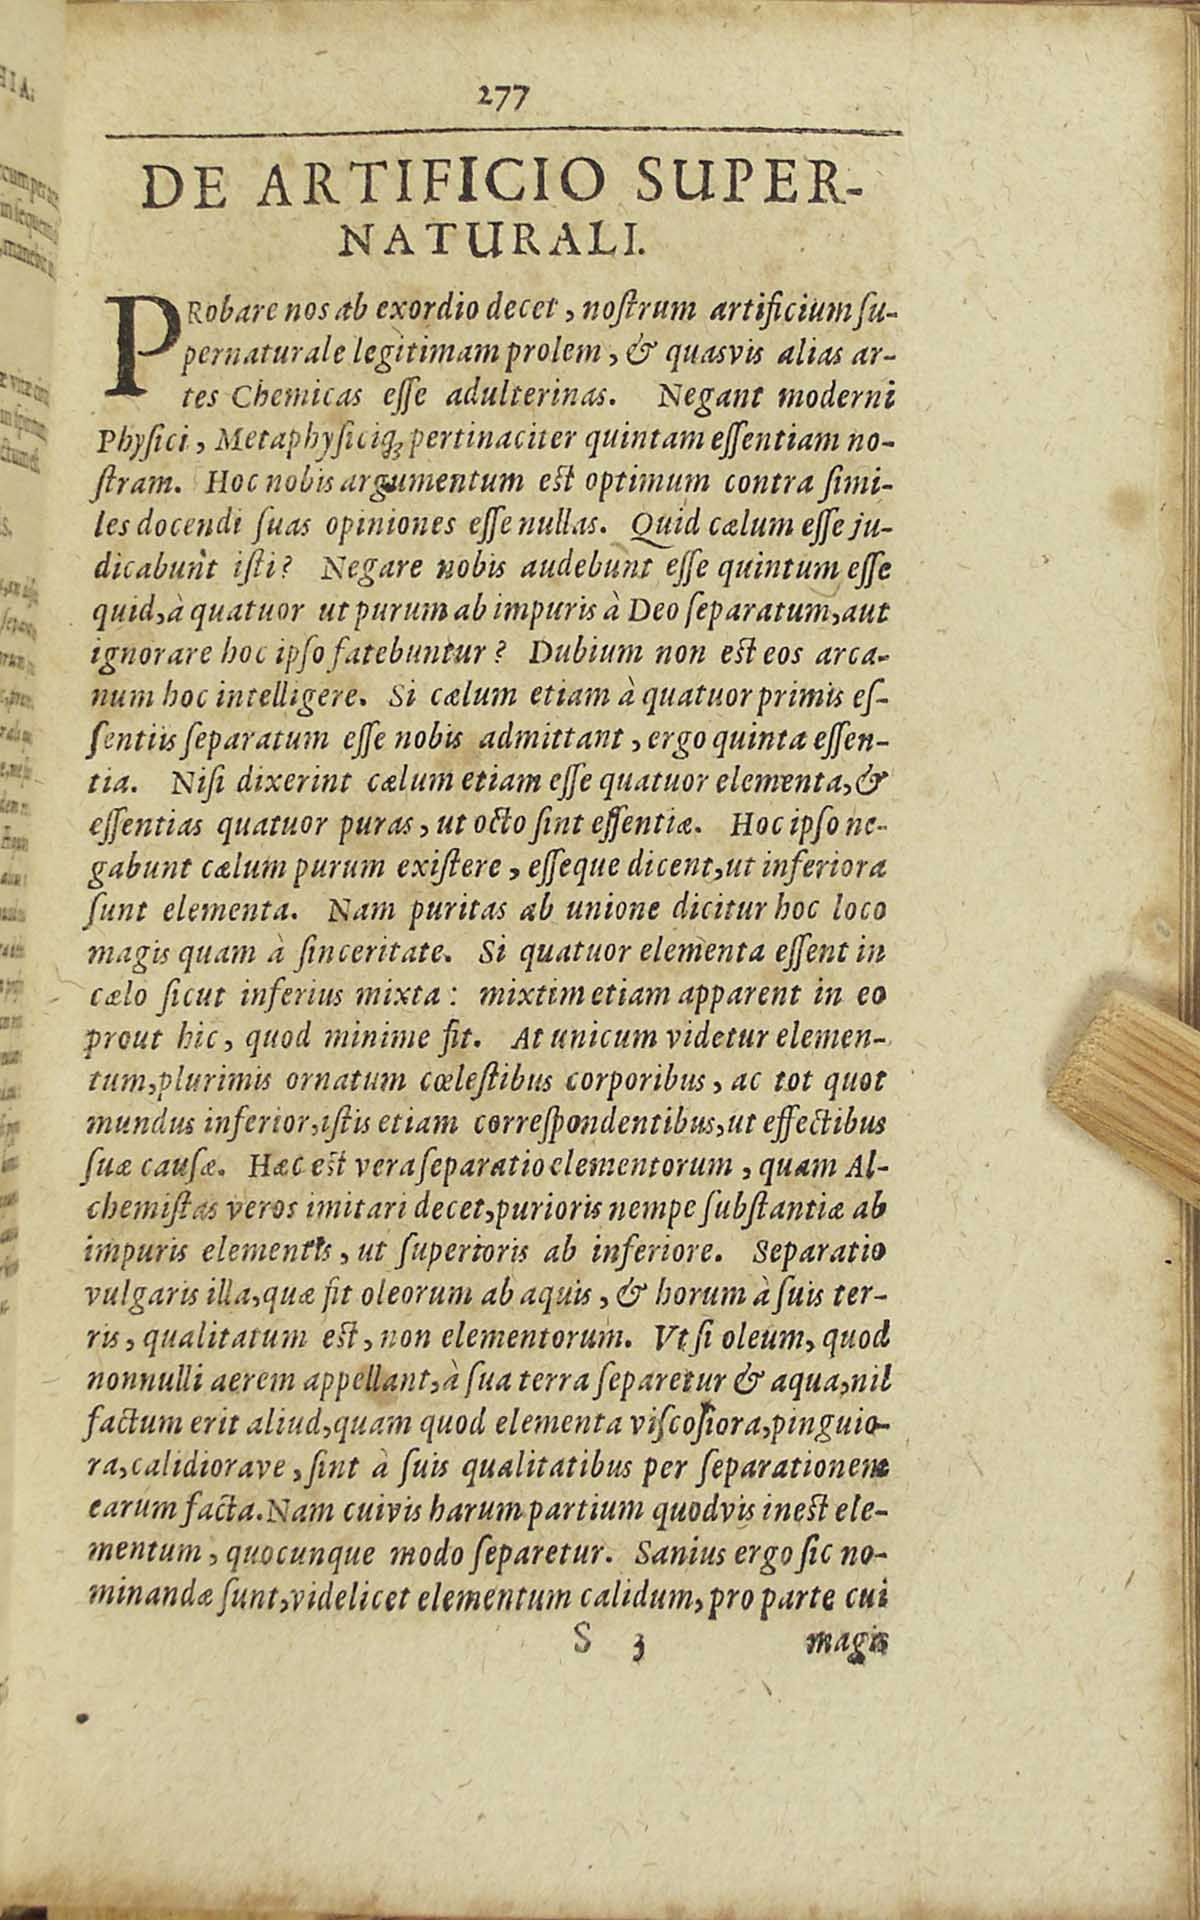 277
DE ARTIFICIO SUPER-
NATURALI.
PRobare nos ab exordio decet, noſtrum artificium ſu-
pernaturale legitimam prolem, & quasvis alias ar-
tes Chemicas eſſe adulterinas. Negant moderni
Phyſici, Metaphyſiciq; pertinaciter quintam eſſentiam no-
ſtram. Hoc nobis argumentum eſt optimum contra ſimi-
les docendi ſuas opiniones eſſe nullas. Quid cælum eſſe ju-
dicabunt iſti? Negare nobis audebunt eſſe quintum eſſe
quid, à quatuor ut purum ab impuris à Deo ſeparatum, aut
ignorare hoc ipſo fatebuntur? Dubium non eſt eos arca-
num hoc intelligere. Si cælum etiam à quatuor primis eſ-
ſentiis ſeparatum eſſe nobis admittant, ergo quinta eſſen-
tia. Niſi dixerint cælum etiam eſſe quatuor elementa, &
eſſentias quatuor puras, ut octo ſint eſſentiæ. Hoc ipſo ne-
gabunt cælum purum exiſtere, eſſeque dicent, ut inferiora
ſunt elementa. Nam puritas ab unione dicitur hoc loco
magis quam à ſinceritate. Si quatuor elementa eſſent in
cælo ſicut inferius mixta: mixtim etiam apparent in eo
prout hic, quod minime fit. At unicum videtur elemen-
tum, plurimis ornatum cœleſtibus corporibus, ac tot quot
mundus inferior, iſtis etiam correſpondentibus, ut effectibus
ſuæ cauſæ. Hæc eſt vera ſeparatio elementorum, quam Al-
chemiſtas veros imitari decet, purioris nempe ſubſtantiæ ab
impuris elementis, ut ſuperioris ab inferiore. Separatio
vulgaris illa, quæ fit oleorum ab aquis, & horum à ſuis ter-
ris, qualitatum eſt, non elementorum. Vt ſi oleum, quod
nonnulli aerem appellant, à ſua terra ſeparetur & aqua, nil
factum erit aliud, quam quod elementa viſcoſiora, pinguio-
ra, calidiorave, ſint à ſuis qualitatibus per ſeparationem
earum facta. Nam cuivis harum partium quodvis ineſt ele-
mentum, quocunque modo ſeparetur. Sanius ergo ſic no-
minandæ ſunt, videlicet elementum calidum, pro parte cui
S 3 magis